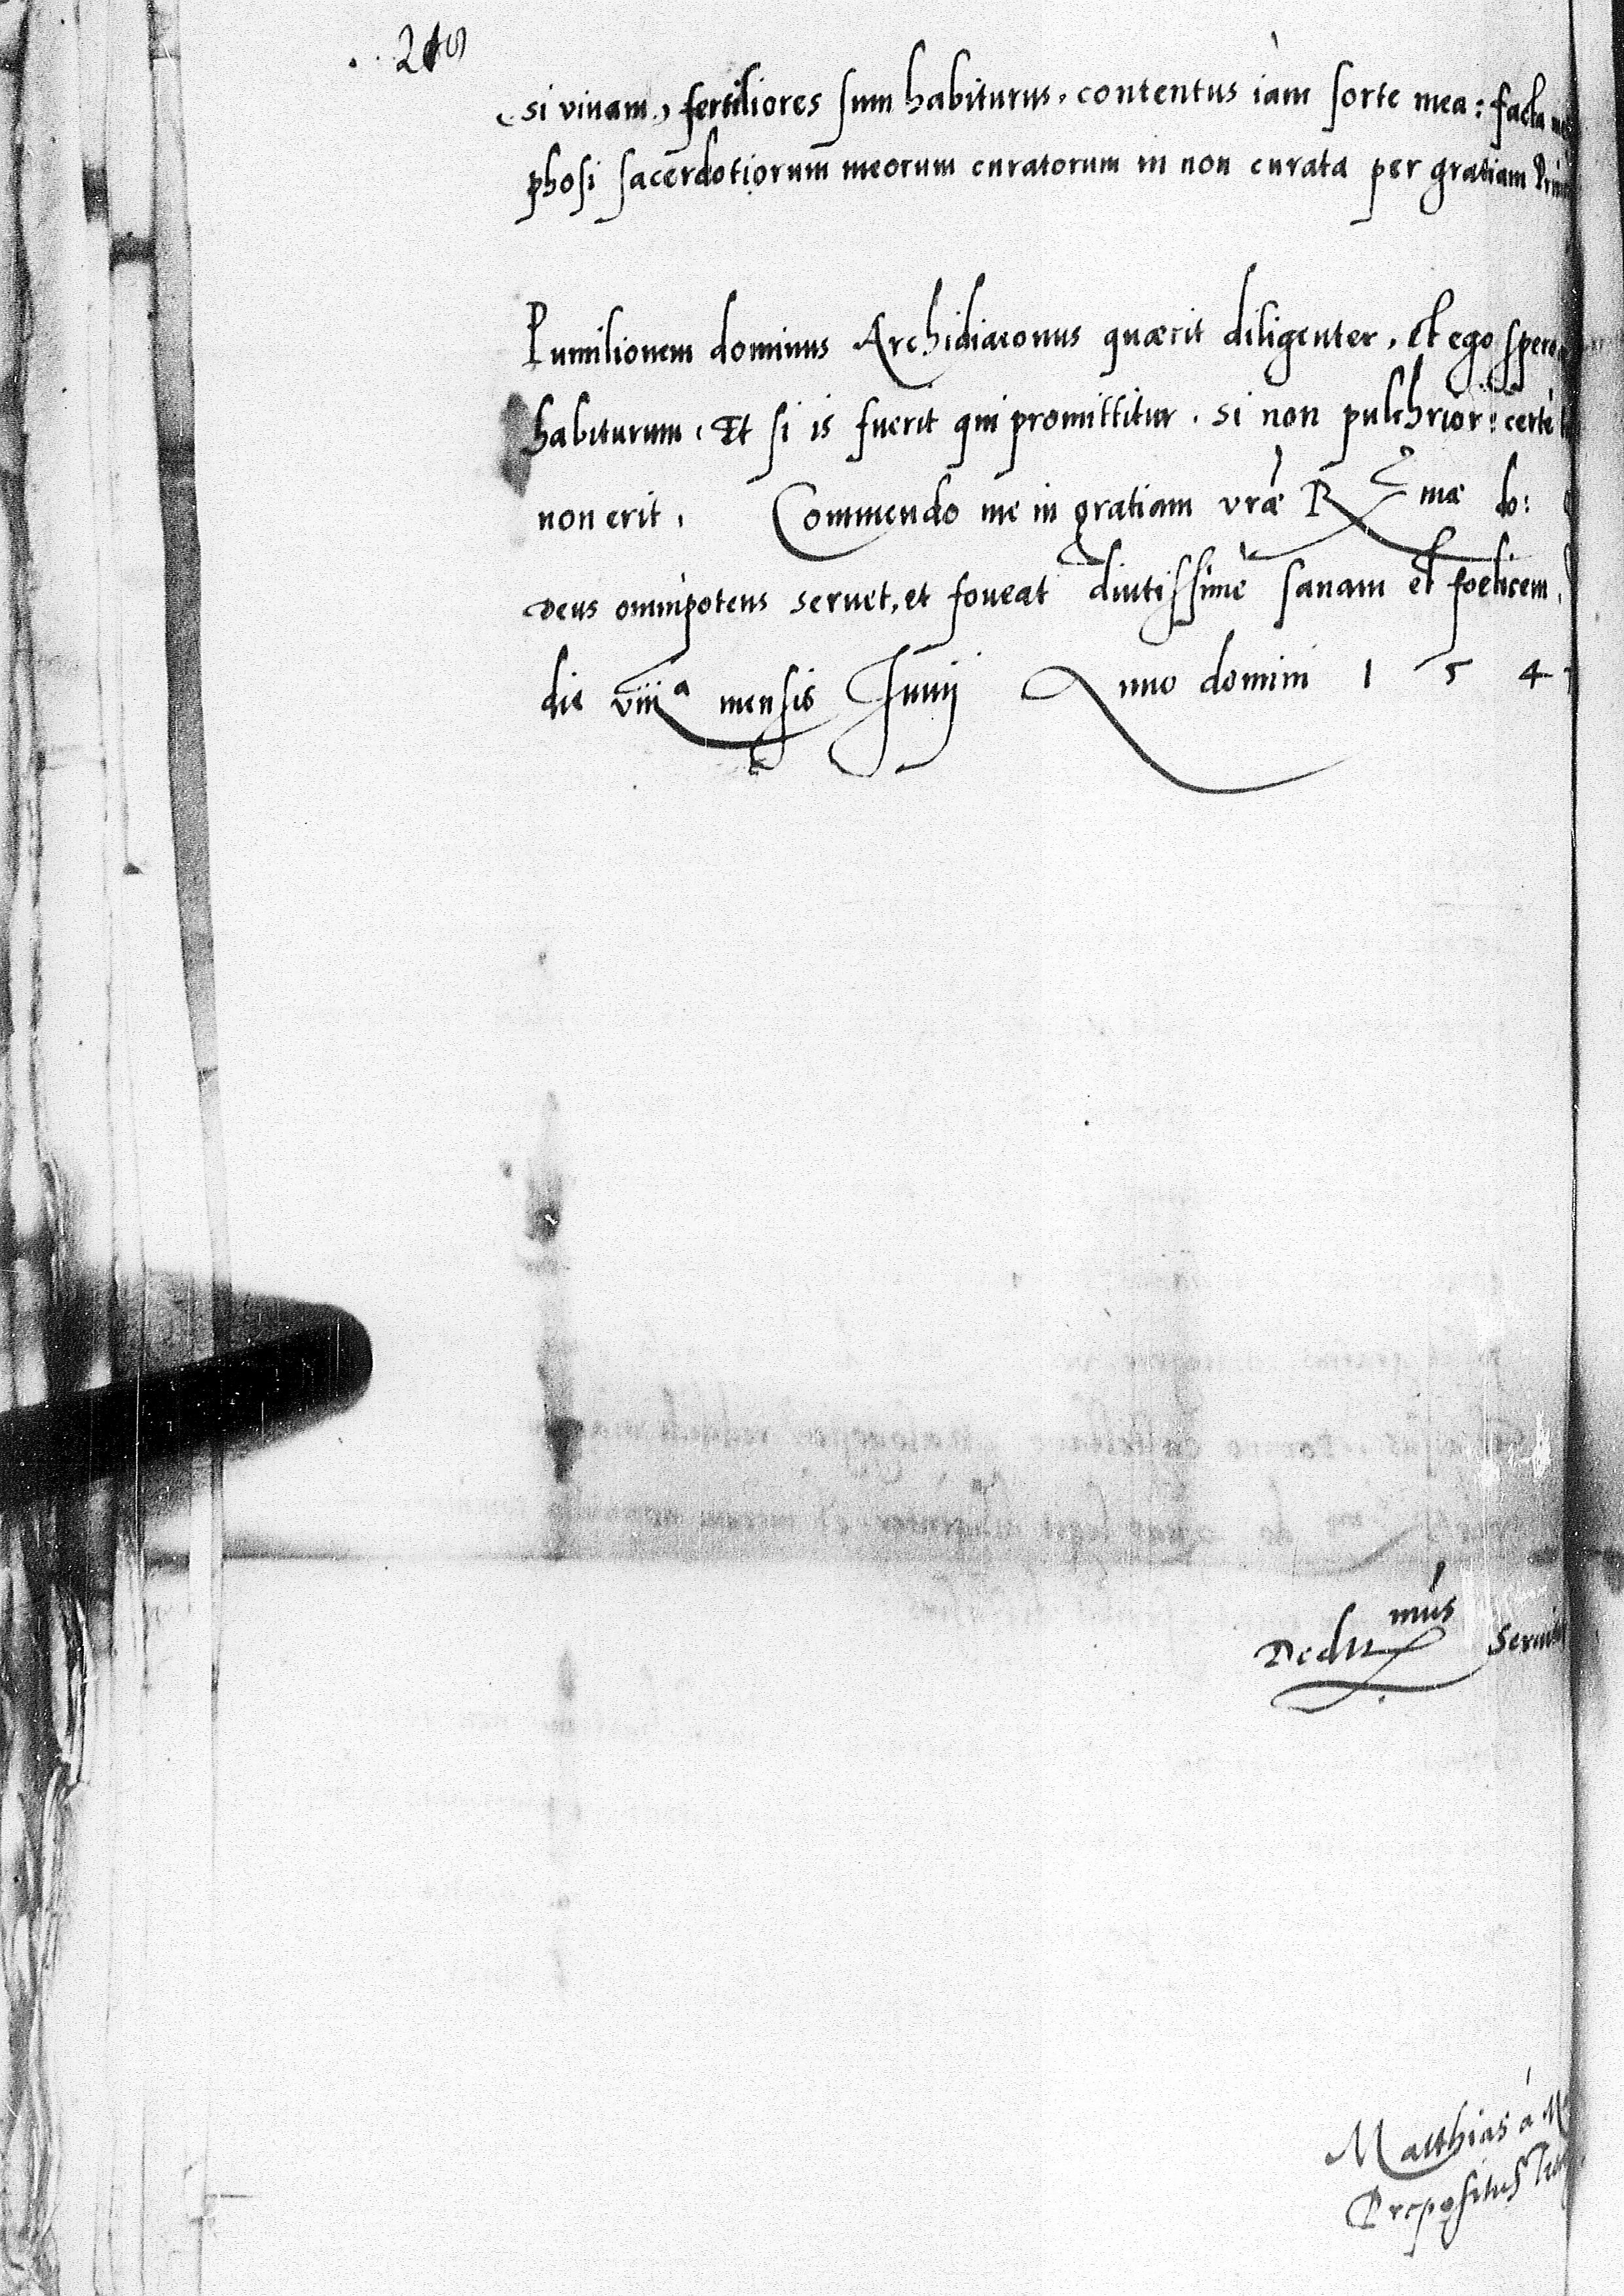 si viuam, fertiliores sum habiturus, contentus iàm sorte mea: facta
phosi sacerdotiorum meorum curatorum in non curata per gratiam
Pumilionem dominus Archidiaconus quærit diligenter, Et ego spero
habiturum, Et si is fuerit qui promittitur, si non pulchrior: certè
non erit, Commendo me in gratiam vræ R mæ do:
Deus omnipotens seruet, et foueat diutissimè sanam et foelicem,
die viiiª mensis Junij Anno domini 1 5 4
Deditmus
Matthias á
Prepositus